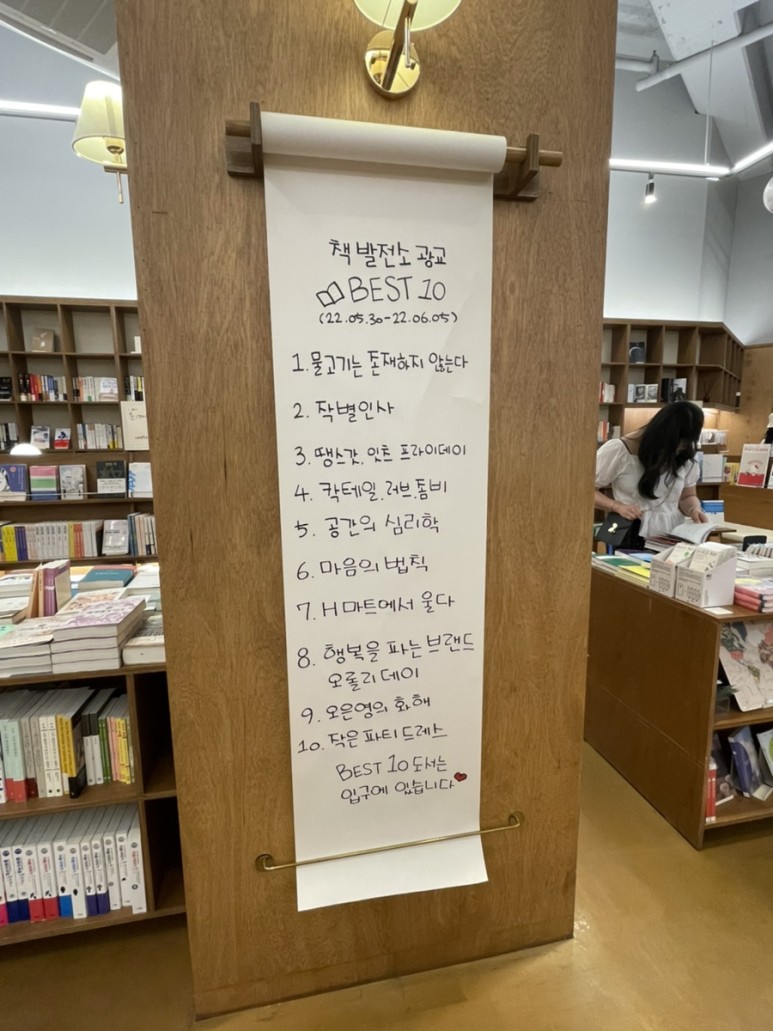 책발전소 광교
BEST 10
(22.05.30-22.06.05)
1. 물고기는 존재하지 않는다
2. 작별인사
3. 땡스갓, 잇츠 프라이데이
4. 칵테일, 러브, 좀비
5. 공간의 심리학
6. 마음의 법칙
7. H마트에서 울다
8. 행복을 파는 브랜드
오롤리데이
9. 오은영의 화해
10. 작은 파티 드레스
BEST 10 도서는
입구에 있습니다